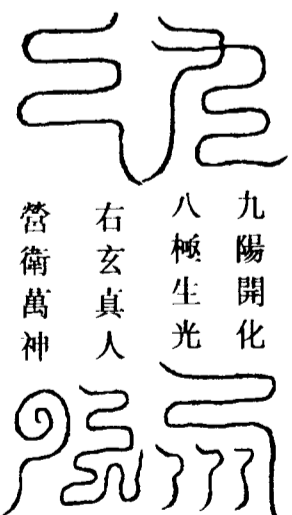 九陽開化
八極生光
右玄真人
營衛萬神